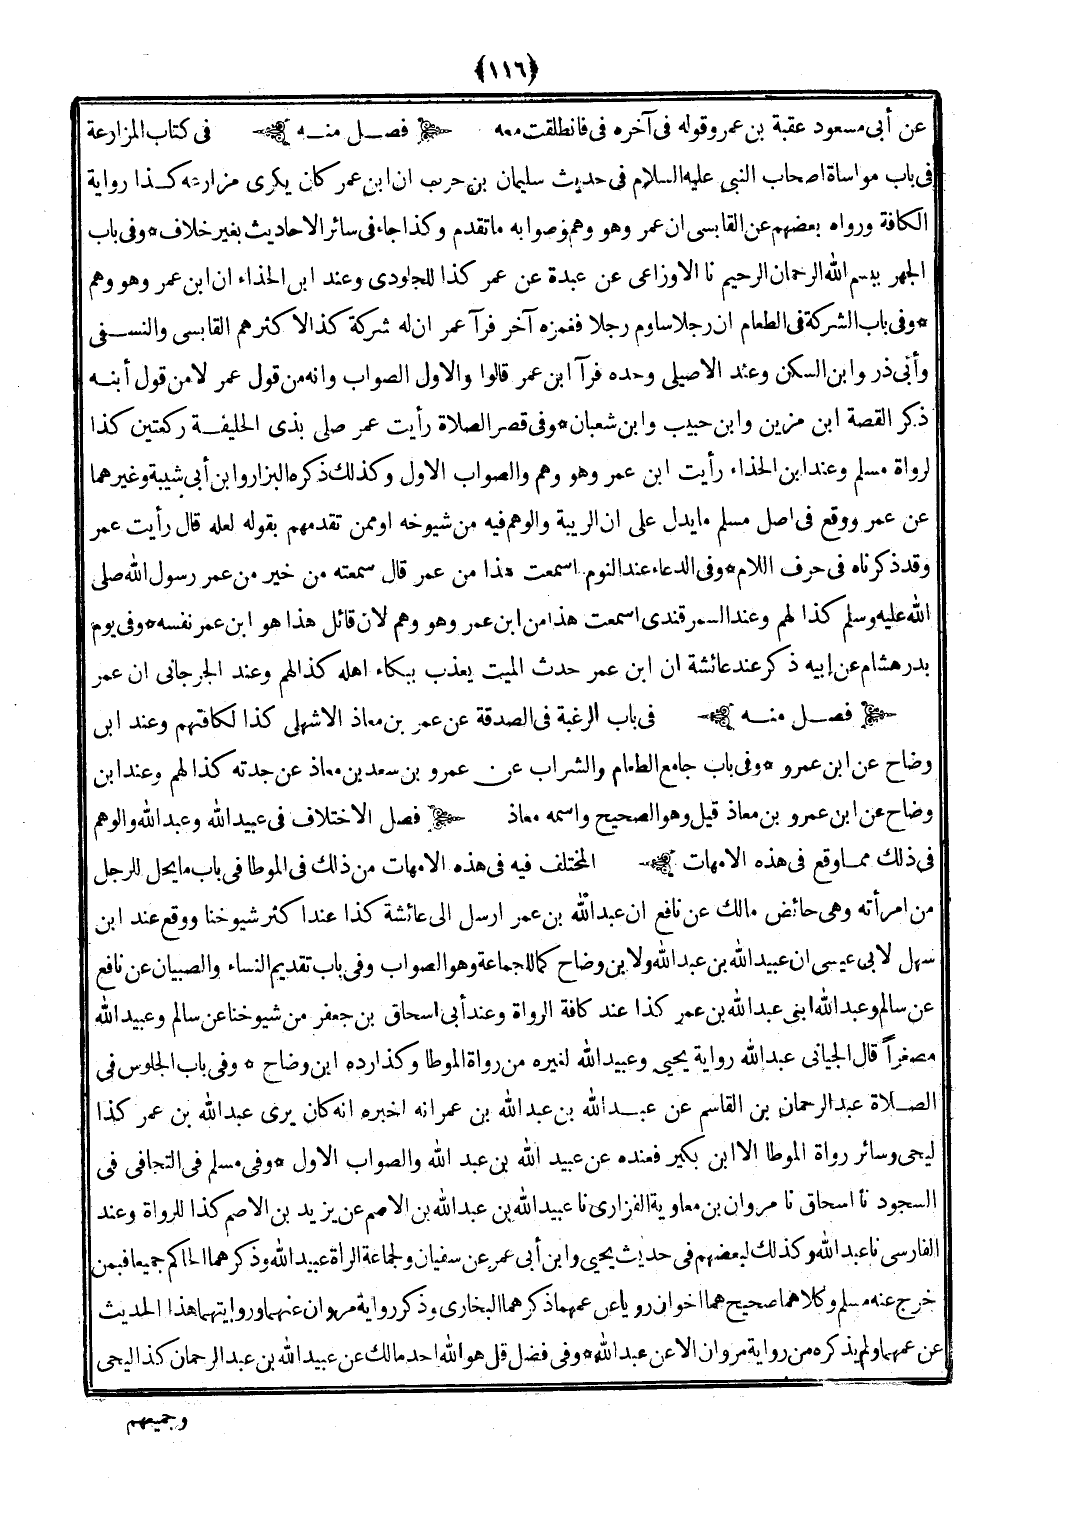 ﴿١١٦﴾
عن أبى مسعود عقبة بن عمر وقوله فى آخره فى فانطلقت معه فصـل منـه فى كتاب المزارعة
فى باب مواساة اصحاب النبى عليه السلام فى حديث سليمان بن حرب ان ابن عمر كان يكرى مزارعه كـذا رواية
الكافة ورواه بعضهم عن القابسى ان عمر وهو وهم وصوابه ما تقدم وكذا جاء فى سائر الاحاديث بغير خلاف * وفى باب
الجهر ببسم الله الرحمان الرحيم نا الاوزاعى عن عبدة عن عمر كذا للجلودى وعند ابن الحذاء ان ابن عمر وهو وهم
* وفى باب الشركة فى الطعام ان رجلا ساوم رجلا فغمزه آخر فرآ عمر ان له شركة كذا لاكثرهم القابسى والنسـفى
وأبى ذر وابن السكن وعند الاصيلى وحده فرآ ابن عمر قالوا والاول الصواب وانه من قول عمر لا من قول أبنـه
ذكر القصة ابن مزين وابن حبيب وابن شعبان * وفى قصر الصلاة رأيت عمر صلى بذى الحليفـة ركعتين كذا
لرواة مسلم وعند ابن الحذاء رأيت ابن عمر وهو وهم والصواب الاول وكذلك ذكره البزار وابن أبى شيبة وغيرهما
عن عمر ووقع فى اصل مسلم ما يدل على ان الريبة والوهم فيه من شيوخه او ممن تقدمهم بقوله لعله قال رأيت عمر
وقد ذكرناه فى حرف اللام * وفى الدعاء عند النوم اسمعت هذا من عمر قال سمعته من خير من عمر رسول الله صلى
الله عليه وسلم كذا لهم وعند السمرقندى اسمعت هذا من ابن عمر وهو وهم لان قائل هذا هو ابن عمر نفسه * وفى يوم
بدر هشام عن ابيه ذكر عند عائشة ان ابن عمر حدث الميت يعذب ببكاء اهله كذا لهم وعند الجرجانى ان عمر
فصـل منـه فى باب الرغبة فى الصدقة عن عمر بن معاذ الاشهلى كذا لكافتهم وعند ابن
وضاح عن ابن عمرو * وفى باب جامع الطعام والشراب عن عمرو بن سعد بن معاذ عن جدته كذا لهم وعند ابن
وضاح عن ابن عمرو بن معاذ قيل وهو الصحيح واسمه معاذ فصل الاختلاف فى عبيد الله وعبد الله والوهم
فى ذلك ممـا وقع فى هذه الامهات المختلف فيه فى هذه الامهات من ذلك فى الموطا فى باب ما يحل للرجل
من امرأته وهى حائض مالك عن نافع ان عبد الله بن عمر ارسل الى عائشة كذا عند اكثر شيوخنا ووقع عند ابن
سهل لابى عيسى ان عبيد الله بن عبد الله ولابن وضاح كما للجماعة وهو الصواب وفى باب تقديم النساء والصبيان عن نافع
عن سالم وعبد الله ابنى عبد الله بن عمر كذا عند كافة الرواة وعند أبى اسحاق بن جعفر من شيوخنا عن سالم وعبيد الله
مصغراً قال الجيانى عبد الله رواية يحيى وعبيد الله لغيره من رواة الموطا وكذا رده ابن وضاح * وفى باب الجلوس فى
الصـلاة عبد الرحمان بن القاسم عن عبـد الله بن عبد الله بن عمر انه اخبره انه كان يرى عبد الله بن عمر كذا
ليحيى وسائر رواة الموطا الا ابن بكير فعنده عن عبيد الله بن عبد الله والصواب الاول * وفى مسلم فى التجافى فى
السجود نا اسحاق نا مروان بن معاوية الفزارى نا عبيد الله بن عبد الله بن الاصم عن يزيد بن الاصم كذا للرواة وعند
الفارسى نا عبد الله وكذلك لبعضهم فى حديث يحيى وابن أبى عمر عن سفيان ولجماعة الراة عبيد الله وذكرهما الحاكم جميعا فيمن
خرج عنه مسلم وكلاهما صحيح هما اخوان رويا عن عمهما ذكرهما البخارى وذكر رواية مروان عنهما وروايتهما هذا الحديث
عن عمهما ولم يذكره من رواية مروان الا عن عبد الله * وفى فضل قل هو الله احد مالك عن عبيد الله بن عبد الرحمان كذا ليحيى
وجميعهم